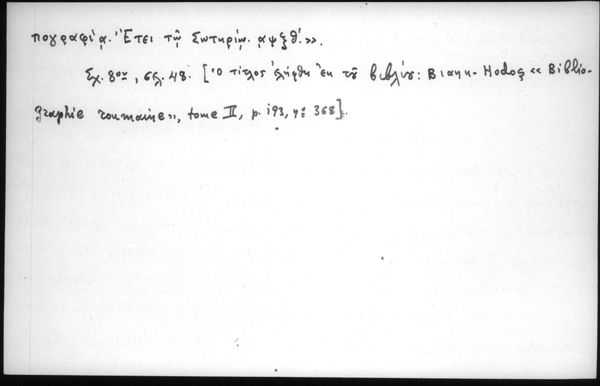 πογραφίᾳ. Ἔτει τῷ Σωτηρίῳ. ᾳψξθ΄.».
Σχ. 8ον, σελ. 48. [Ὁ τίτλος ἐλήφθη ἐκ τοῦ βιβλίου: Bianu - Hodoş «Biblio-
graphie roumaine», tome II, p. 193, No 368].